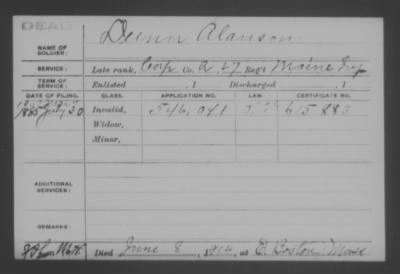 DEAD
NAME OF SOLDIER: Dunn Alanson
SERVICE: Late rank, Corp Co. A, 27 Reg't Maine Inf
TERM OF SERVICE: Enlisted , 1 Discharged , 1
DATE OF FILING. CLASS. APPLICATION NO. LAW. CERTIFICATE NO.
1885 July 30 Invalid, 546,041 615,883
Widow,
Minor,
ADDITIONAL SERVICES:
REMARKS:
Died June 8, 1914, at E. Boston Mass